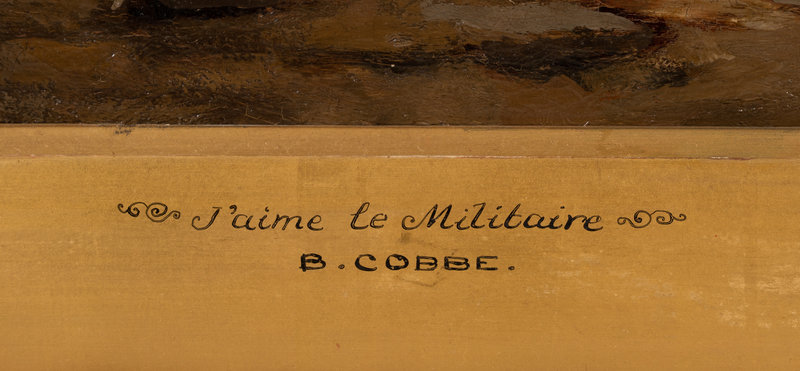 J'aime le Militaire
B. COBBE.